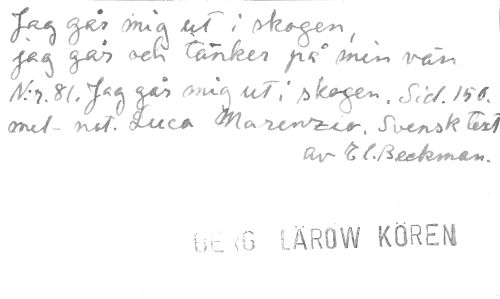 Jag går mig ut i skogen,
jag går och tänker på min vän
N:r. 81. Jag går mig ut i skogen. Sid. 150.
mel- not. Luca Marenzio. Svensk text
av El. Beckman.
BERG LÄROW KÖREN